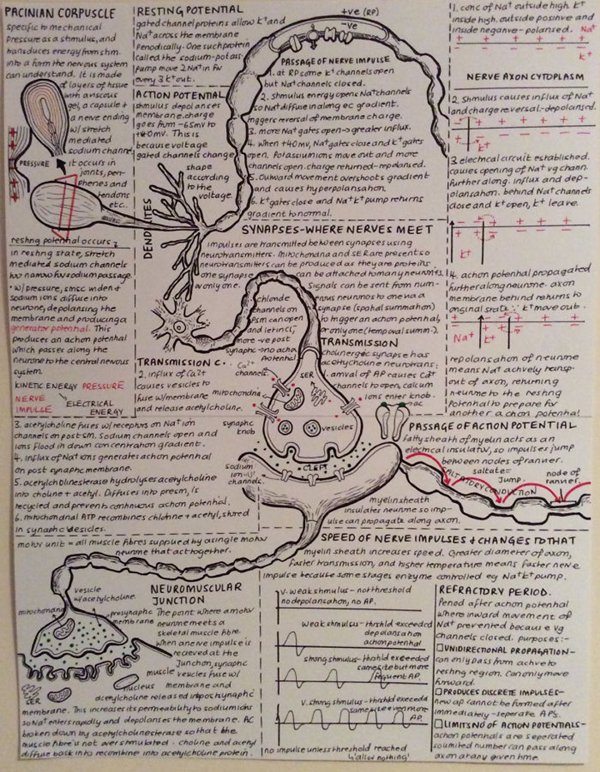 PACINIAN CORPUSCLE
specific to mechanical
pressure as a stimulus, and
transduces energy from stim.
into a form the nervous system
can understand. It is made
of layers of tissue
with a viscous
gel, a capsule +
a nerve ending
w/ stretch
mediated
sodium channel
it occurs in
joints, peri-
phenes and
tendons
etc.
PRESSURE
resting potential occurs :
in resting state, stretch
mediated sodium channels
too narrow for sodium passage.
• w/ pressure, msc widen +
sodium ions diffuse into
neurone, depolarising the
membrane and producing a
generator potential. This
produces an action potential
which passes along the
neurone to the central nervous
system.
KINETIC ENERGY PRESSURE
NERVE IMPULSE
ELECTRICAL ENERGY
RESTING POTENTIAL
gated channel proteins allow K+ and
Na+ across the membrane
periodically. One such protein
called the sodium-potass
pump move 2 Na+ in for
every 3 K+ out.
ACTION POTENTIAL
stimulus depolarises
membrane. charge
goes from -65mv to
+40mv. This is
because voltage
gated channels change
shape
according
to the
voltage.
DENDRITES
+ve (RP)
-ve
PASSAGE OF NERVE IMPULSE
1. at RP some K+ channels open
but Na+ channels closed.
2. stimulus energy opens Na+ channels
so Na+ diffuse in along ec gradient.
triggers reversal of membrane charge.
3. more Na+ gates open → greater influx.
4. when +40mv, Na+ gates close and K+ gates
open. Potassium ions move out and more
channels open. charge returned - repolarised.
5. Outward movement overshoots gradient
and causes hyperpolarisation.
6. K+ gates close and Na+ K+ pump returns
gradient to normal.
1. conc of Na+ outside high. K+
inside high. outside positive and
inside negative - polarised. Na+
K+
NERVE AXON CYTOPLASM
2. Stimulus causes influx of Na+
and charge reversal - depolarised.
K+
3. electrical circuit established.
causes opening of Na+ vg chan.
further along. influx and dep-
olarisation. behind Na+ channels
close and K+ open, K+ leave.
K+
4. action potential propagated
further along neurone. axon
membrane behind returns to
original state : K+ move out.
Na+
K+
repolarisation of neurone
means Na+ actively transp.
out of axon, returning
neurone to the resting
potential to prepare for
another action potential
SYNAPSES - WHERE NERVES MEET
impulses are transmitted between synapses using
neurotransmitters. mitochondria and SER are present so
neurotransmitters can be produced as they are proteins
one synapse can be attached to many neurones,
or only one. Signals can be sent from num-
erous neurones to one via a
synapse (spatial summation)
to trigger an action potential,
or only one (temporal summ.).
chloride
channels on
psm can open
and let in cl,
more -ve post
synaptic → no action
potential
TRANSMISSION
cholinergic synapse has
acetylcholine neurotrans:
1. arrival of AP causes Ca2+
channels to open, calcium
ions enter knob.
TRANSMISSION C..
2. influx of Ca2+
causes vesicles to
fuse w/ membrane
and release acetylcholine.
Ca2+
channels
SER
mitochondria
synaptic
knob
vesicles
CLEFT
sodium
ion
channels
AC
3. acetylcholine fuses w/ receptors on Na+ ion
channels on post SM. Sodium channels open and
ions flood in down concentration gradient.
4. influx of Na+ ions generates action potential
on post synaptic membrane.
5. acetylcholinesterase hydrolyses acetylcholine
into choline + acetyl. Diffuses into presm, is
recycled and prevents continuous action potential.
6. mitochondrial ATP recombines chlorine + acetyl, stored
in synaptic vesicles.
PASSAGE OF ACTION POTENTIAL
fatty sheath of myelin acts as an
electrical insulator, so impulses jump
between nodes of ranvier.
saltate =
jump.
node of
ranvier
SALTATORY CONDUCTION
myelin sheath
insulates neurone so imp-
ulse can propagate along axon.
motor unit = all muscle fibres supplied by a single motor
neurone that act together.
SPEED OF NERVE IMPULSES + CHANGES TO THAT
myelin sheath increases speed. Greater diameter of axon,
faster transmission, and higher temperature means faster nerve
impulse because some stages enzyme controlled eg Na+ K+ pump.
NEUROMUSCULAR
JUNCTION
The point where a motor
neurone meets a
skeletal muscle fibre.
When a nerve impulse
is recieved at the
junction, synaptic
vesicles fuse w/
membrane and
acetylcholine released into postsynaptic
membrane. This increases its permeability to sodium ions
so Na+ enters rapidly and depolarises the membrane. AC
broken down by acetylcholinesterase so that the
muscle fibre is not over stimulated. choline and acetyl
diffuse back into recombine into acetylcholine protein.
vesicle
w/ acetylcholine
mitochondria
presynaptic
membrane
muscle
nucleus
SER
V. weak stimulus - no threshold
no depolarisation, no AP.
weak stimulus - thr'shld exceeded
depolarisation
action potential
strong stimulus - thr'shld exceeded
same size but more
frequent AP.
V. strong stimulus - thr'shld exceeded
same size even more
AP.
no impulse unless threshold reached
'all or nothing'
REFRACTORY PERIOD.
Period after action potential
where inward movement of
Na+ prevented because vg
channels closed. purposes :-
UNIDIRECTIONAL PROPAGATION -
can only pass from active to
resting region. Can only move
forward.
PRODUCES DISCRETE IMPULSES -
new ap cannot be formed after
immediately - seperate APs.
LIMITS NO OF ACTION POTENTIALS -
action potentials are seperated
so limited number can pass along
axon at any given time.